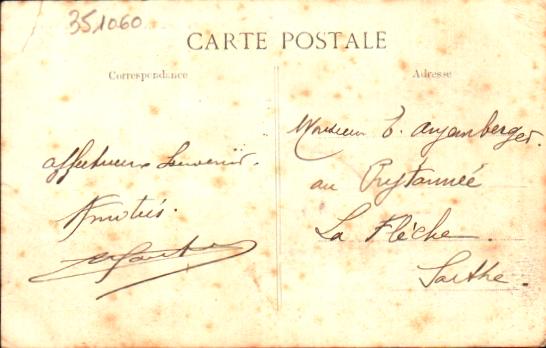 351060
CARTE POSTALE
Correspondance
Adresse
affectueux Souvenir.
Amitiés.
Monsieur E. Angenberger.
au Prytannée
La Flèche.
Sarthe.